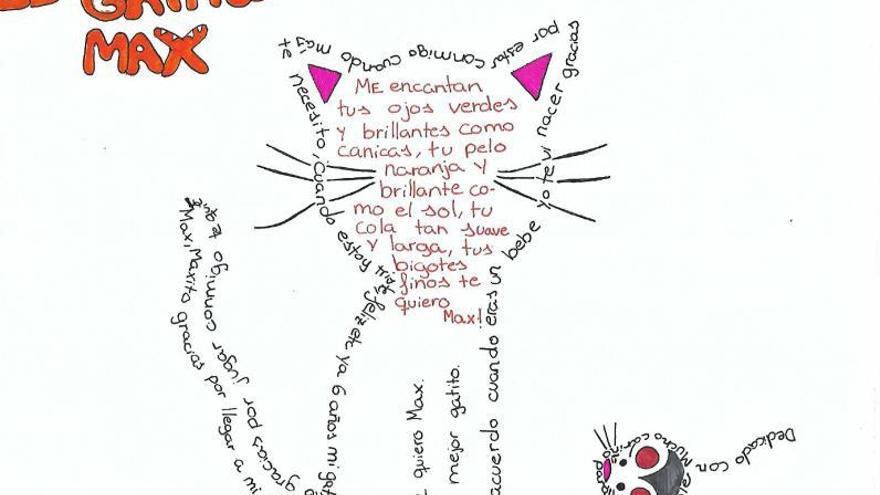 GATITO
MAX
por estar conmigo cuando más te
necesito, Cuando estoy triste, feliz etc ya 6 años mi
yo te vi nacer gracias
acuerdo cuando eras un bebe
ME encantan
tus ojos verdes
Y brillantes como
canicas, tu pelo
naranja Y
brillante co-
mo el sol, tu
cola tan suave
Y larga, tus
bigotes
finos te
quiero
Max!
Max, Maxito gracias por llegar a mi
gracias por jugar conmigo
quiero Max.
mejor gatito.
Dedicado con
Mucho cariño
para